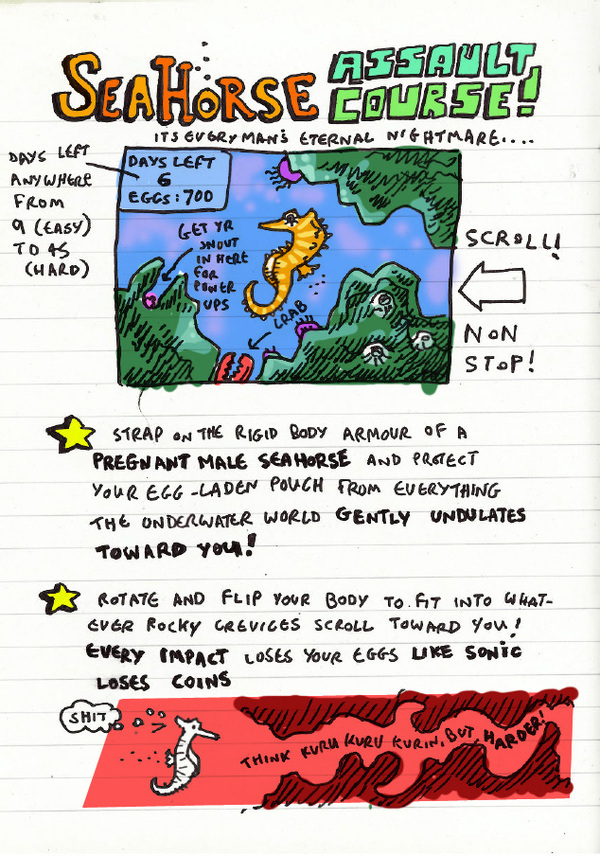 SEAHORSE ASSAULT COURSE!
ITS EVERY MAN'S ETERNAL NIGHTMARE....
DAYS LEFT
ANYWHERE
FROM
9 (EASY)
TO 45
(HARD)
DAYS LEFT
6
EGGS: 700
GET YR
SNOUT
IN HERE
FOR
POWER
UPS
CRAB
SCROLL!
NON
STOP!
STRAP ON THE RIGID BODY ARMOUR OF A
PREGNANT MALE SEAHORSE AND PROTECT
YOUR EGG-LADEN POUCH FROM EVERYTHING
THE UNDERWATER WORLD GENTLY UNDULATES
TOWARD YOU!
ROTATE AND FLIP YOUR BODY TO FIT INTO WHAT-
EVER ROCKY CREVICES SCROLL TOWARD YOU!
EVERY IMPACT LOSES YOUR EGGS LIKE SONIC
LOSES COINS
SHIT
THINK KURU KURU KURIN, BUT HARDER!